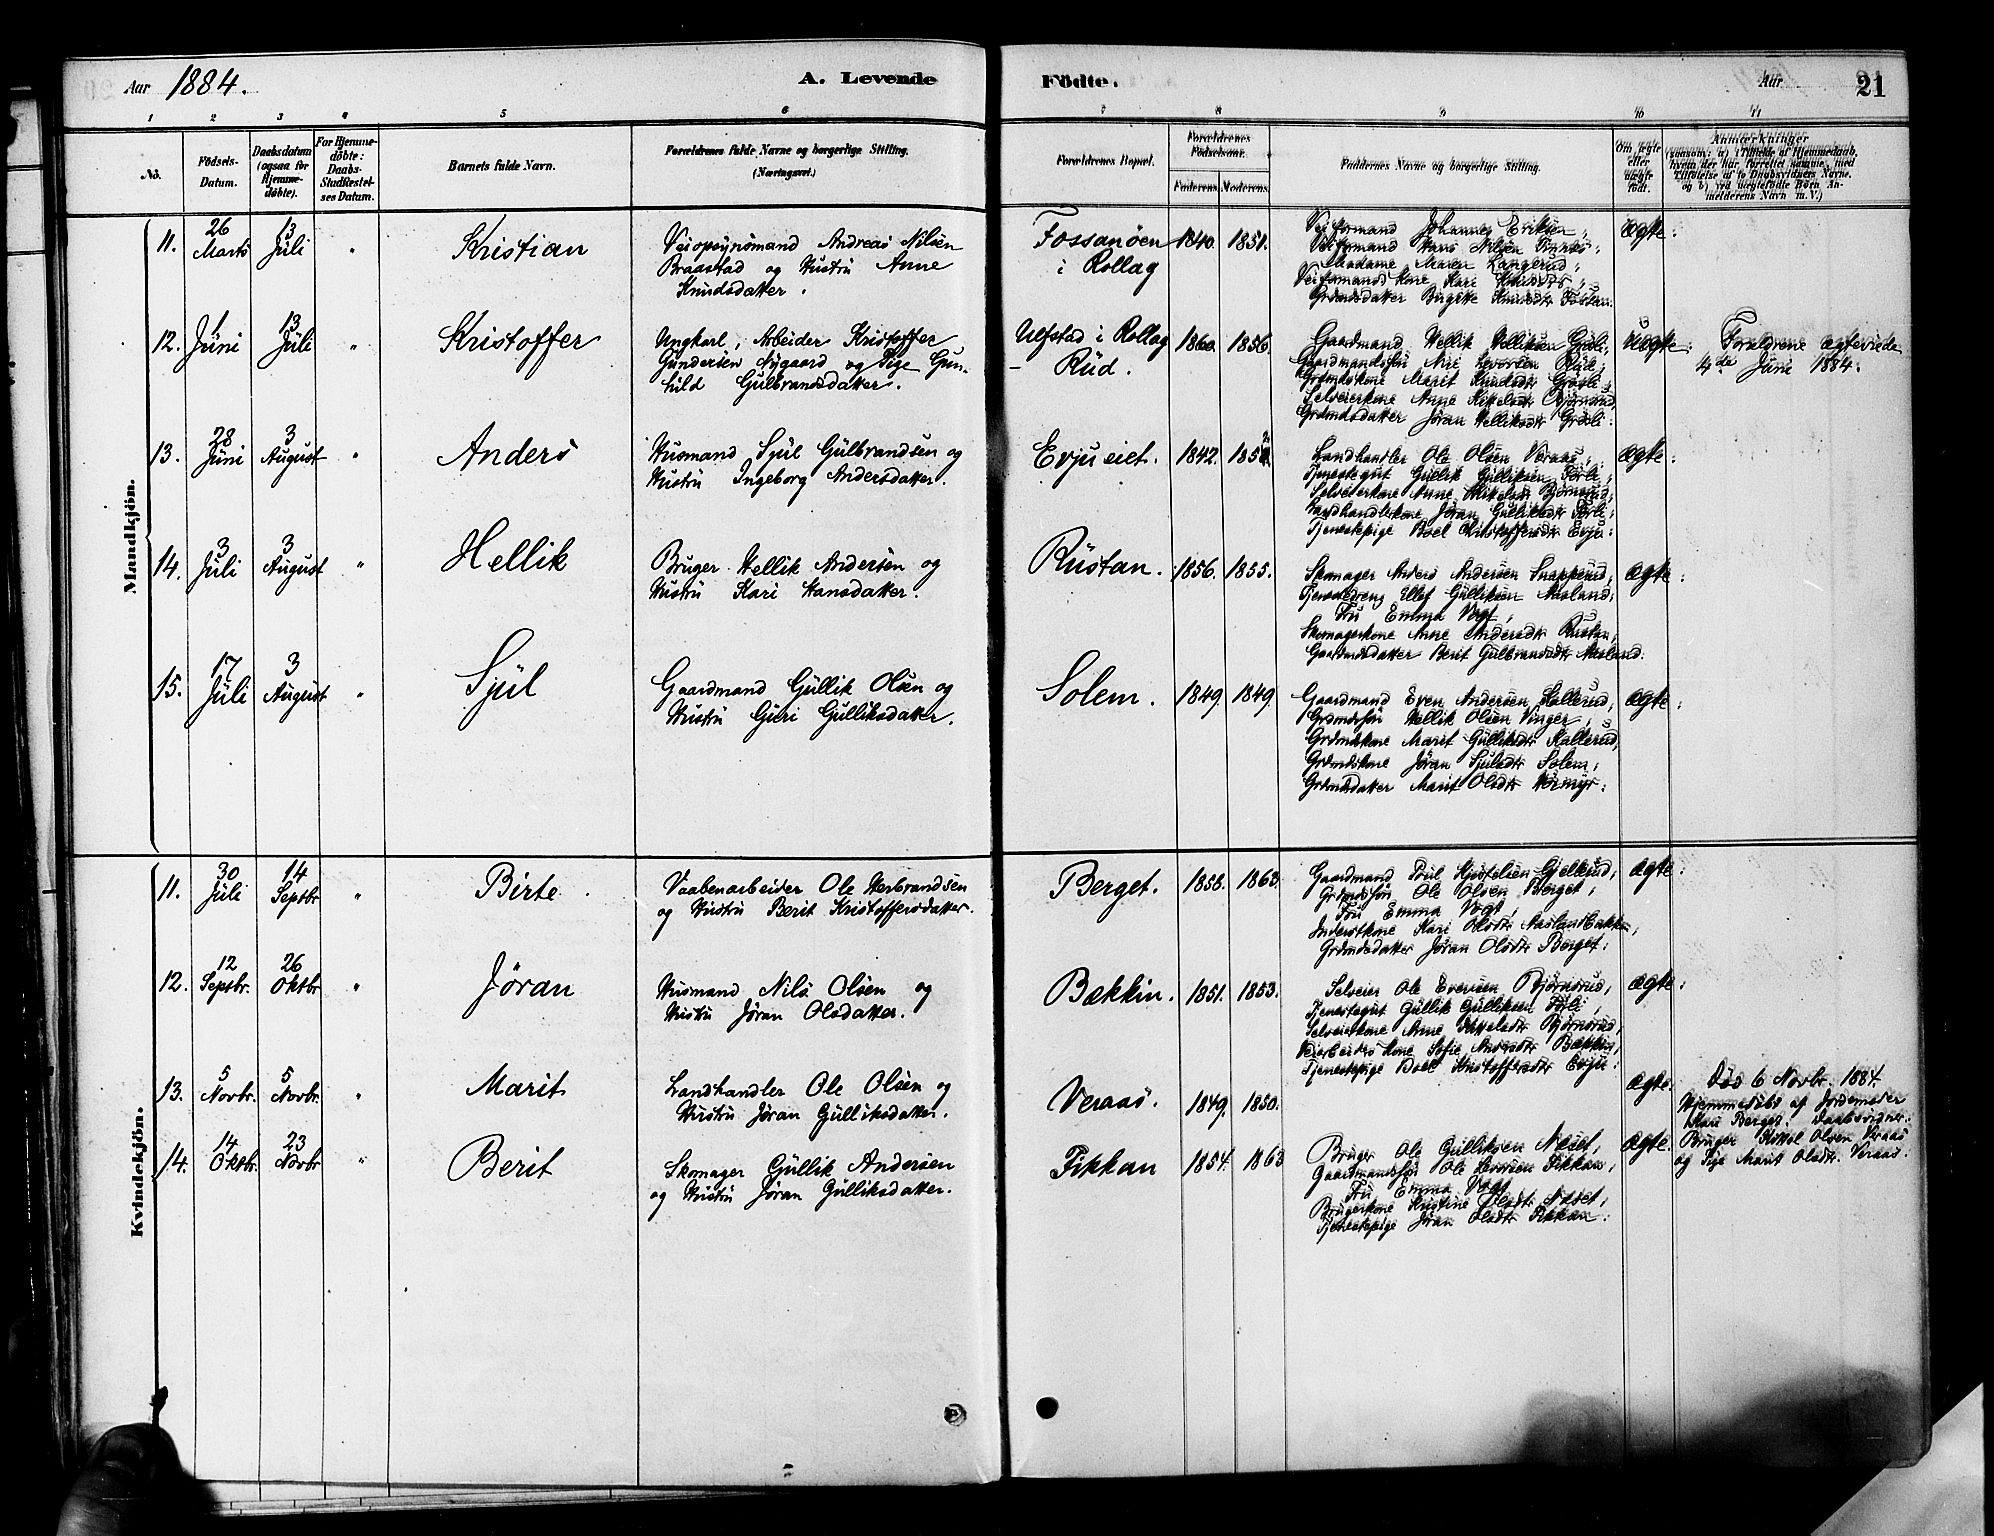 Aar 1884. A. Levende Födte. Aar 21
1 2 3 4 5 6 7 8 9 10 11
No. Födsels-Datum. Daabsdatum (ogsaa for Hjemmedöbte). For Hjemmedöbte: Daabs-Stadfestelses Datum. Barnets fulde Navn. Forældrenes fulde Navne og borgerlige Stilling. (Næringsvei.) Forældrenes Bopæl. Forældrenes Födselsaar. Faderens. Moderens. Faddernes Navne og borgerlige Stilling. Om ægte eller uægte födt. Anmærkninger
Mandkjön.
11. 26 Marts 13 Juli " Kristian
Veiopsynsmand Andreas Nilsen
Braastad og Hustru Anne
Knudsdatter.
Fossanøen
i Rollag
1840. 1851.
Veiformand Johannes Eriksen,
Veiformand Hans Nilsen
Madame Maren Langerud,
Veiformands Kone Kari
Grdmdsdatter Birgitte Knudsdtr
Ægte.
12. 1 Juni 13 Juli " Kristoffer
Ungkarl, Arbeider Kristoffer
Gundersen Nygaard og Pige Gun-
hild Gulbrandsdatter.
Ulfstad i Rollag
– Rud.
1860. 1856.
Gaardmand Hellik Helliksen Gråsli,
Gaardmandssøn Levorsen Rud,
Grdmdskone Marit Knudsdtr Gråsli,
Selveierkone Anne Kittelsdtr Bjørnsrud,
Grdmdsdatter Jøran Helliksdtr Gråsli.
Uægte.
Forældrene ægteviede
4de Juni 1884.
13. 28 Juni 3 August " Anders
Husmand Sjul Gulbrandsen og
Hustru Ingeborg Andersdatter.
Evjueiet.
1842. 1852
Landhandler Ole Olsen Veraas,
Tjenestegut Gullik Gulliksen Førli,
Selveierkone Anne Kittelsdtr Bjørnsrud,
Landhandlerkone Jøran Gulliksdtr
Tjenestepige Boel Kristoffersdtr Evju.
Ægte.
14. 3 Juli 3 August " Hellik
Bruger Hellik Andersen og
Hustru Kari Hansdatter.
Rustan.
1856. 1855.
Skomager Anders Andersen
Ellef Gulliksen Aasland,
Fru Emma Vogt,
Skomagerkone Anne Andersdtr Rustan,
Gaardmdsdatter Berit Gulbrandsdtr Aasland.
Ægte.
15. 17 Juli 3 August " Sjul
Gaardmand Gullik Olsen og
Hustru Guri Gulliksdatter.
Solem.
1849. 1849.
Gaardmand Even Andersen Kallerud,
Grdmdssøn Hellik Olsen Vinger,
Grdmdskone Marit Gulliksdtr Kallerud,
Grdmdskone Jøran Sjulsdtr Solem,
Grdmdsdatter Marit Olsdtr
Ægte.
Kvindekjön.
11. 30 Juli 14 Septbr " Birte
Vaabenarbeider Ole Herbrandsen
og Hustru Berit Kristoffersdatter.
Berget.
1858. 1863.
Gaardmand
Grdmdssøn Ole Olsen Berget,
Fru Emma Vogt,
Inderstkone Kari Olsdtr Aaslandbakken,
Grdmdsdatter Jøran Olsdtr Berget.
Ægte.
12. 12 Septbr. 26 Oktbr " Jøran
Husmand Nils Olsen og
Hustru Jøran Olsdatter.
Bækkin.
1851. 1853.
Selveier Ole Evensen Bjørnsrud,
Tjenestegut Gullik Gulliksen Førli,
Selveierkone Anne Kittelsdtr Bjørnsrud,
Veiarbeiders Kone Sofie Andersdtr Bækkin,
Tjenestepige Boel Kristoffersdtr Evju.
Ægte.
13. 5 Novbr. 5 Novbr. " Marit
Landhandler Ole Olsen og
Hustru Jøran Gulliksdatter.
Veraas.
1849. 1850.
Ægte.
Død 6 Novbr. 1884.
Hjemmedøbt af Jordemoder
Kari Berget. Daabsvidner:
Bruger Kittel Olsen Veraas
og Pige Marit Olsdtr. Veraas.
14. 14 Oktbr. 23 Novbr " Berit
Skomager Gullik Andersen
og Hustru Jøran Gulliksdatter.
Fikkan
1854. 1863
Bruger Ole Gulliksen Næset,
Gaardmandssøn Ole Levorsen Fikkan,
Fru Emma Vogt
Brugerkone Kristine Olsdtr Næset,
Tjenestepige Jøran Olsdtr Fikkan.
Ægte.